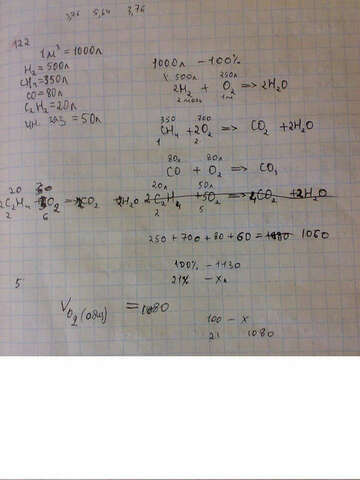 3,76 5,64 3,76
122
1 м³ = 1000л
H₂ = 500л
CH₄ = 350л
CO = 80л
C₂H₂ = 20л
ин. газ = 50л
1000л – 100%
500л 250л
2H₂ + O₂ => 2H₂O
2 моль 1м
350 700
CH₄ + 2O₂ => CO₂ + 2H₂O
1 2
80л 80л
CO + O₂ => CO₂
20
2C₂H₄ O₂ => CO₂ H₂O
2 6
20л 50л
2C₂H₄ + 5O₂ => 4CO₂ + 2H₂O
2 5
250 + 700 + 80 + 60 = 1080 1060
100% – 1130
21% – x л
5
V O₂ (общ) = 1080
100 – x
21 1080